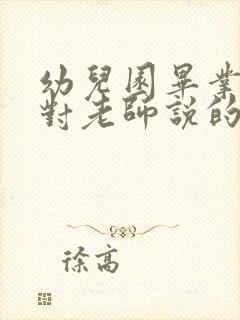 幼兒園畢業
對老師說的
徐高